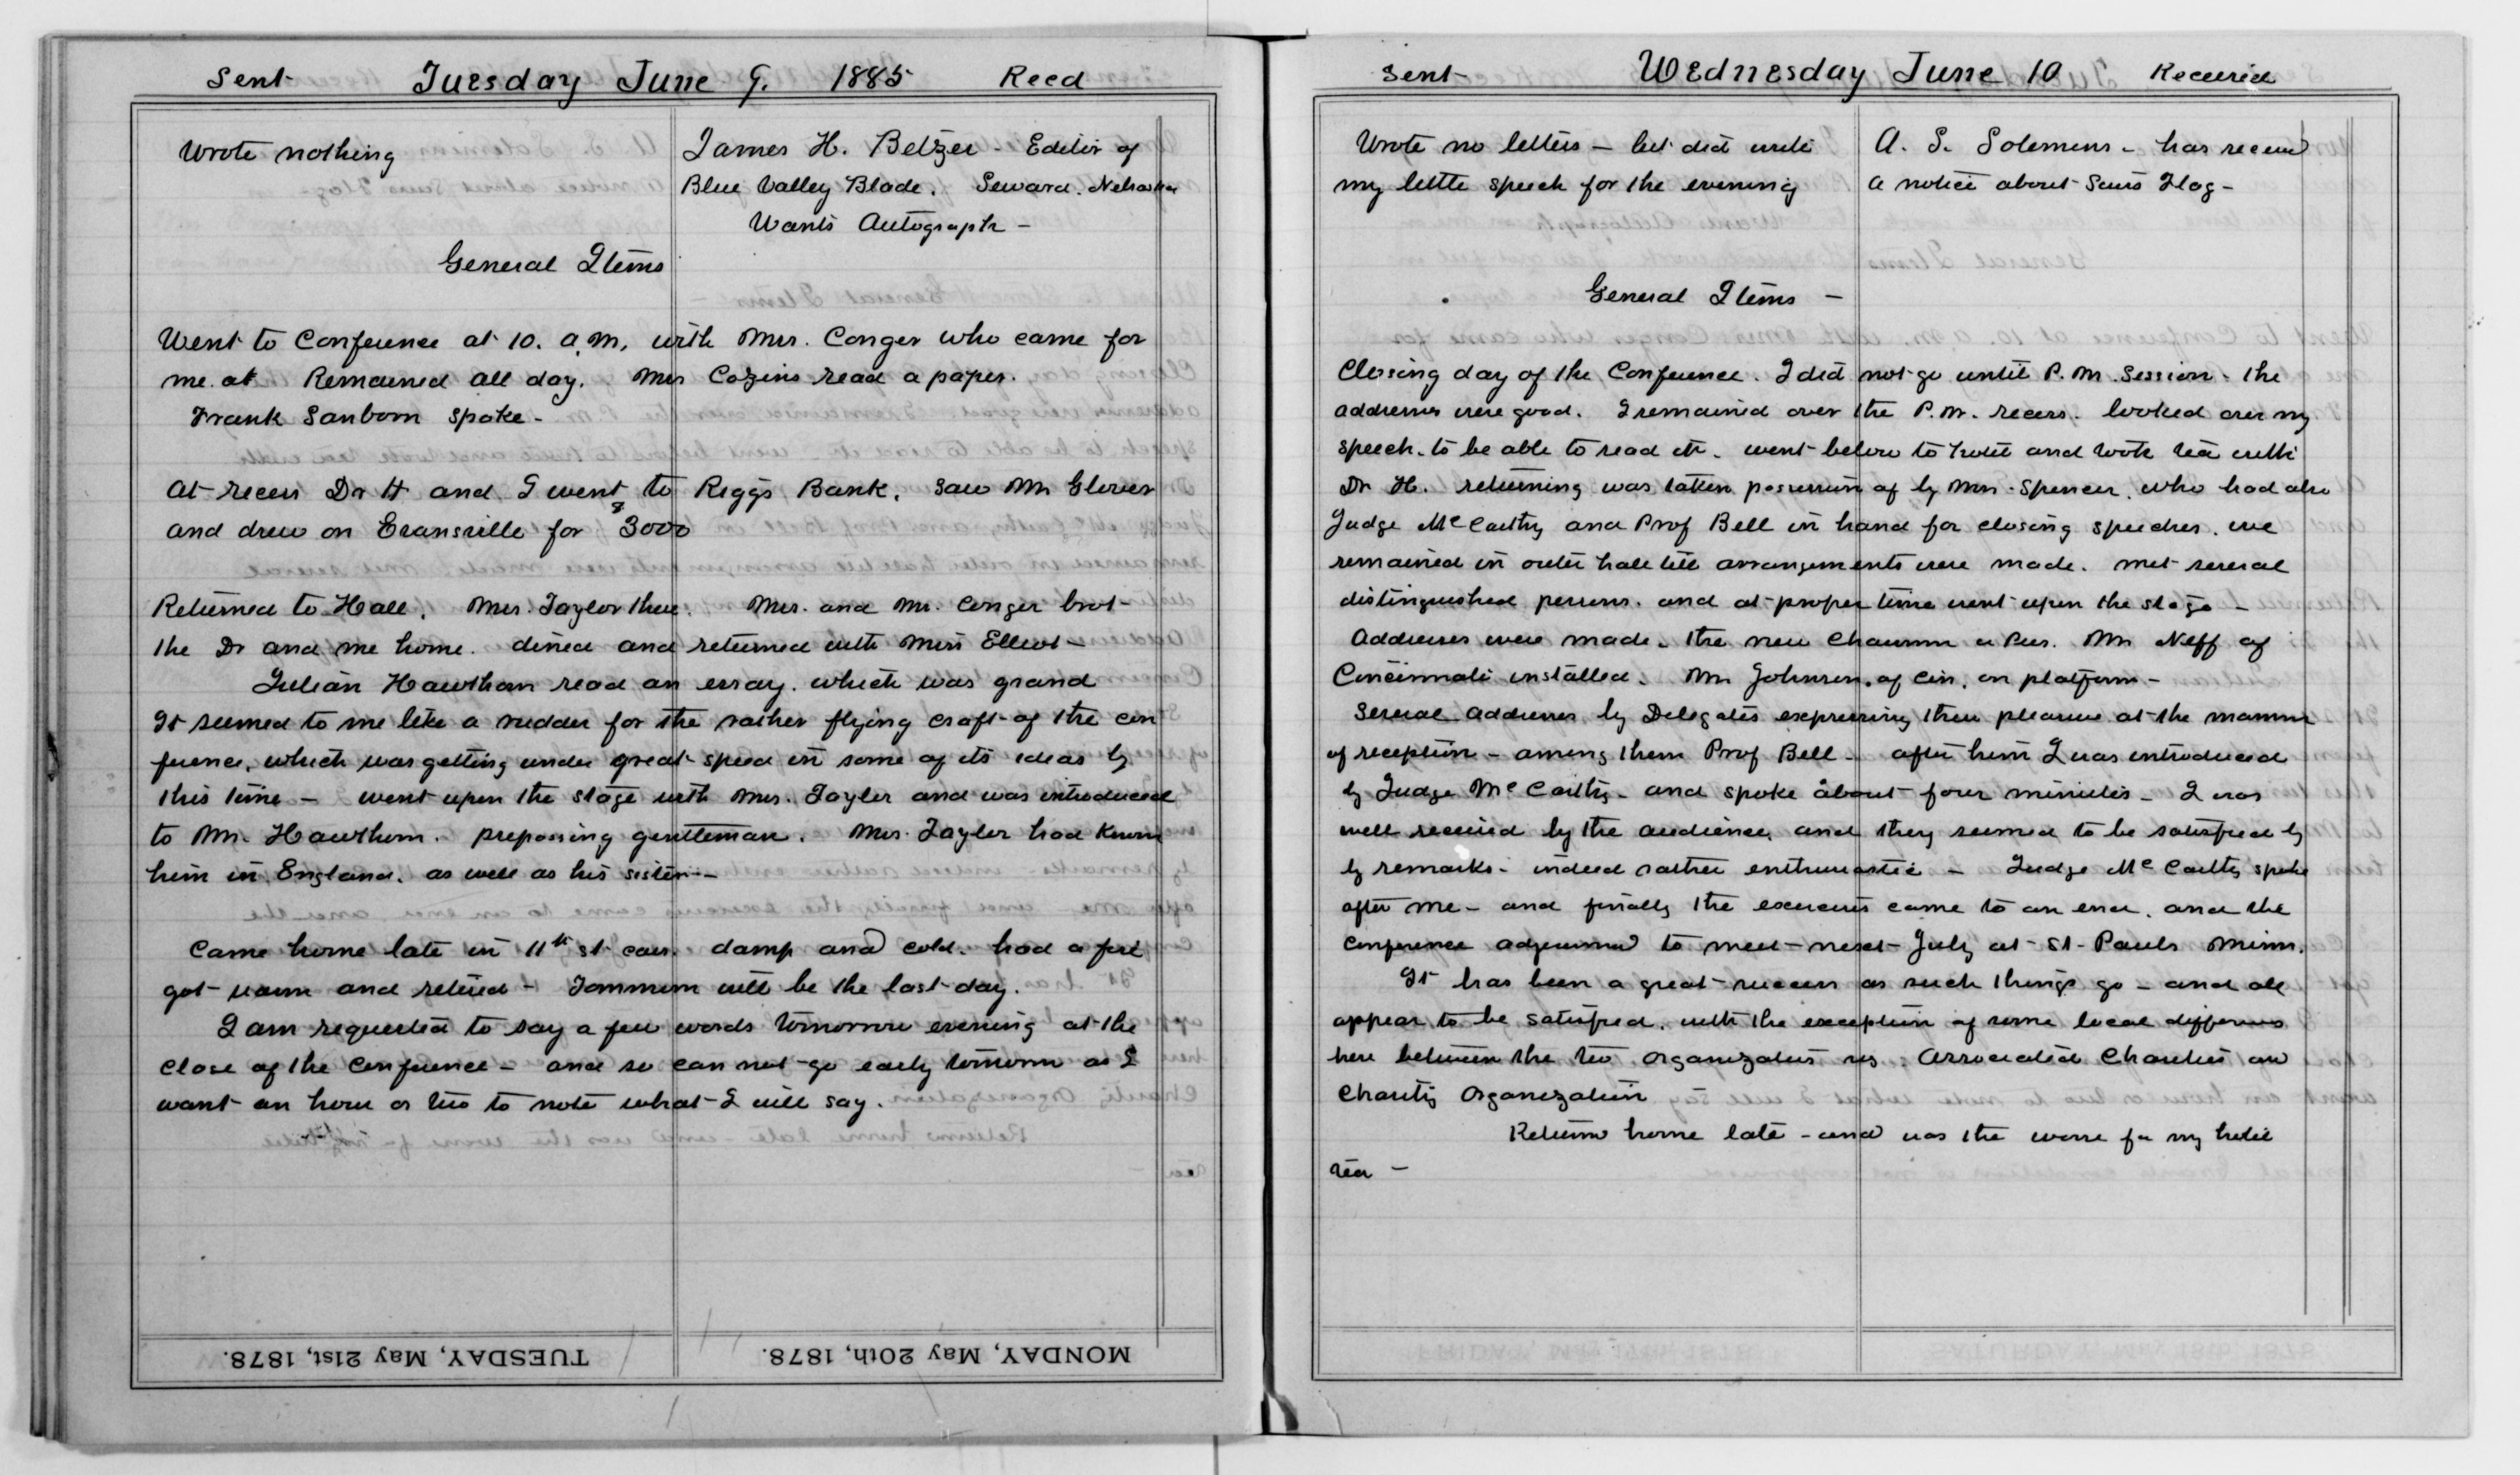 Sent Tuesday June 9. 1885 Recd
Wrote nothing
James H. Betzer - Editor of
Blue Valley Blade. Seward. Nebraska
Wants Autograph -
General Items
Went to Conference at 10. a.m. with Mrs. Conger who came for
me. at Remained all day. Mrs Cozins read a paper.
Frank Sanborn spoke -
At recess Dr H and I went to Riggs Bank. Saw Mr Glover
and drew on Evansville for $3000
Returned to Hall. Mrs. Taylor there. Mrs. and Mr. Conger brot
the Dr and me home. dined and returned with Miss Elliot -
Julian Hawthorn read an essay. which was grand
It seemed to me like a rudder for the rather flying craft of the con
ference, which was getting under great speed in some of its ideas by
this time - went upon the stage with Mrs. Tayler and was introduced
to Mr. Hawthorn. prepossing gentleman. Mrs. Tayler had known
him in England. as well as his sister -
Came home late in 11th st cars. damp and cold. had a fire
got warm and retired - Tommorrow will be the last day.
I am requested to say a few words tomorrow evening at the
close of the Conference - and so can not go early tomorrow as I
want an hour or two to note what I will say.
MONDAY, May 20th, 1878.
TUESDAY, May 21st, 1878.
Sent Wednesday June 10 Received
Wrote no letters - but did write
my little speech for the evening
A. S. Solomons - has received
a notice about Saurs Flag -
General Items -
Closing day of the Conference. I did not go until P.M. Session - the
addresses were good. I remained over the P.M. recess. looked over my
speech. to be able to read it. went below to hotel and took tea with
Dr H. returning was taken possession of by Mrs. Spencer. who had also
Judge McCarthy and Prof Bell in hand for closing speeches. we
remained in outer hall till arrangements were made. met several
distinguished persons. and at proper time went upon the stage -
Addresses were made. the new chairman a Pres. Mr Neff of
Cincinnati installed. Mr Johnson. of Cin. on platform -
Several addresses by Delegates expressing their pleasure at the manner
of reception - among them Prof Bell - after him I was introduced
by Judge McCarthy - and spoke about four minutes - I was
well received by the audience, and they seemed to be satisfied by
by remarks - indeed rather enthusiastic - Judge McCarthy spoke
after me - and finally the exercises came to an end. and the
Conference adjourned to meet next July at St Pauls Minn.
It has been a great success as such things go - and all
appear to be satisfied. with the exception of some local differences
here between the two organizations vis: Associated Charities and
Charity Organization
Returned home late - and was the worse for my hotel
tea -